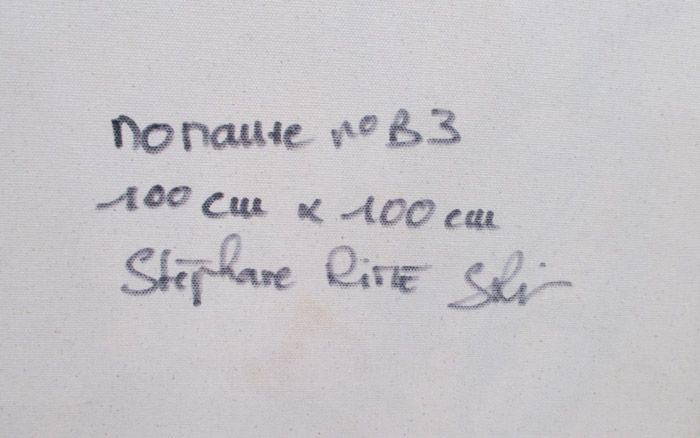 nonante n° B3
100 cm x 100 cm
Stéphane RiTTE